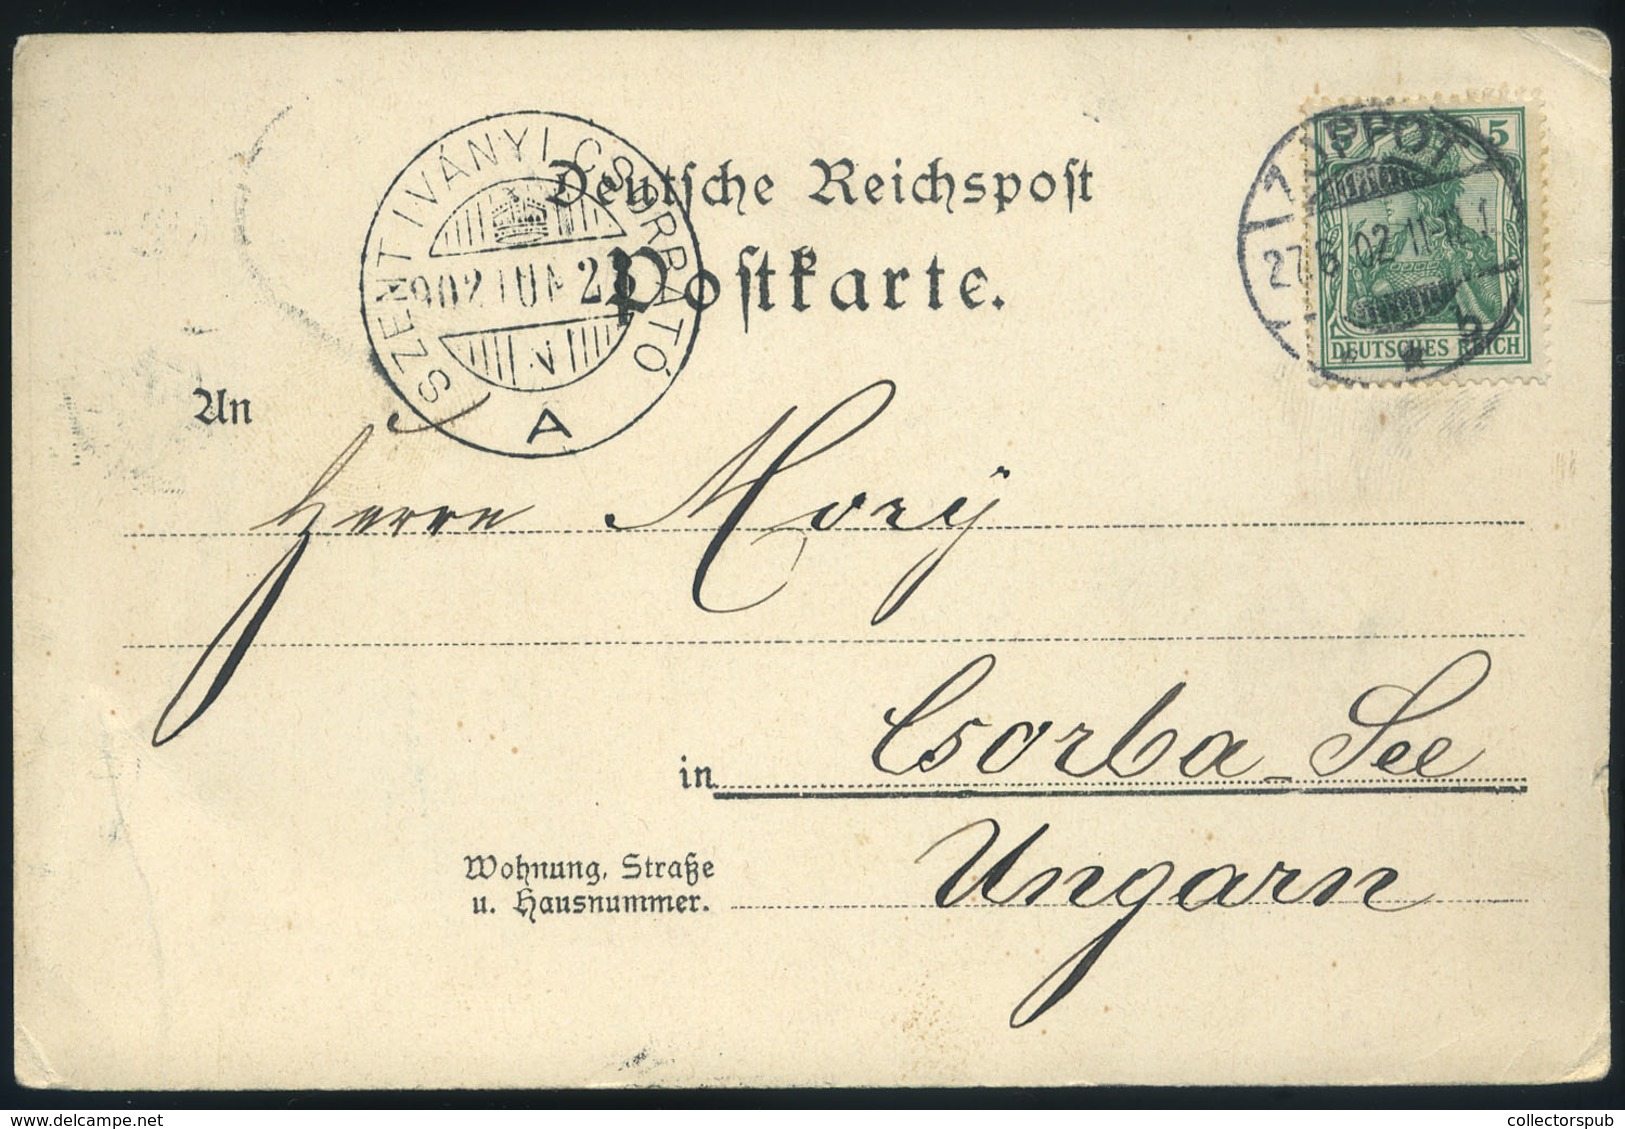 Deutsche Reichspost
Postkarte.
SZENTIVÁNYI CSORBATÓ
902 JUN 28
A
ZOPPOT
5
27.6.02.11-12.
DEUTSCHES REICH
An
Herrn Mory
in Csorba-See
Wohnung, Straße
u. Hausnummer.
Ungarn
www.delcampe.net
collectorspub